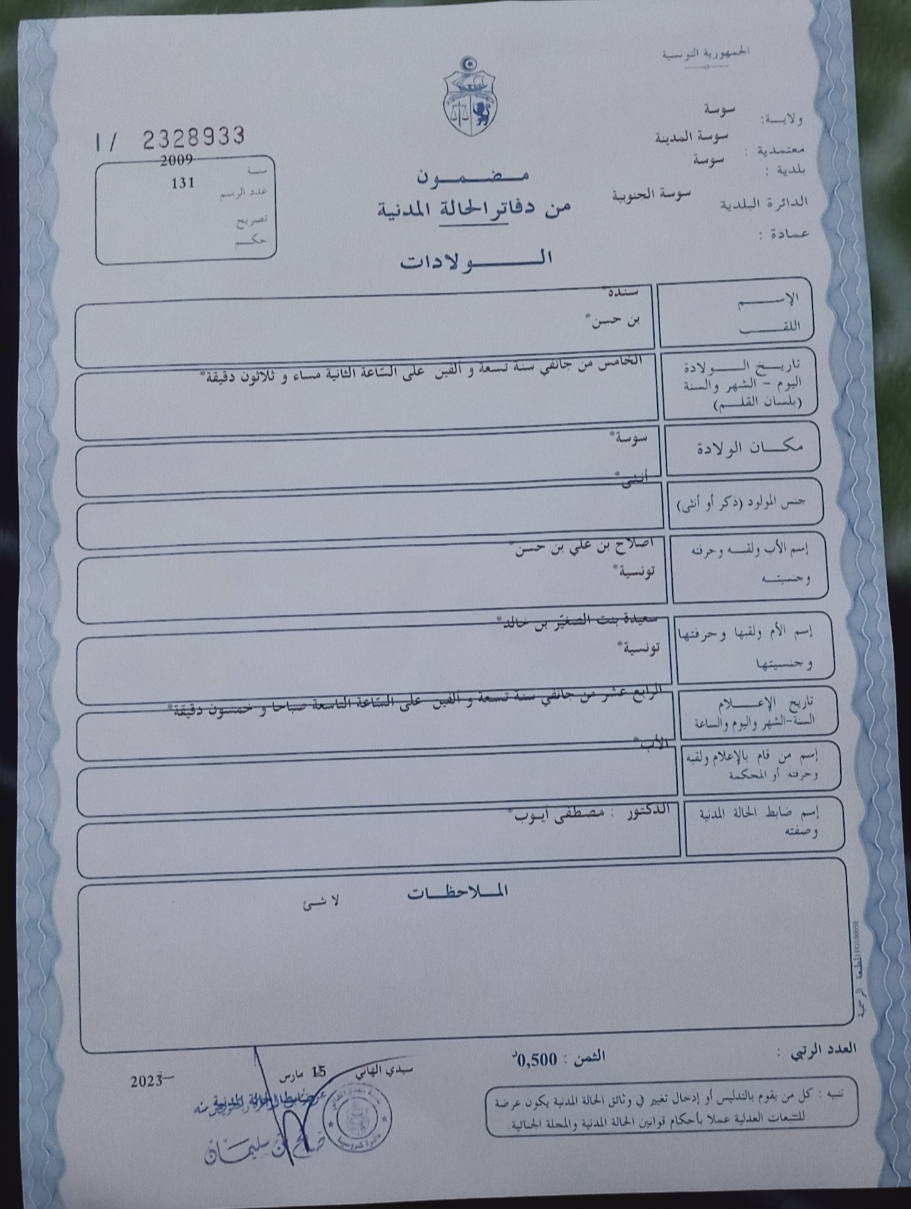 الجمهورية التونسية
ولايـة: سوسة
معتمدية : سوسة المدينة
بلدية : سوسة
الدائرة البلدية سوسة الجنوبية
عمادة :
I/ 2328933
سنة 2009
عدد الرسم 131
تصريح
حكم
مضمون
من دفاتر الحالة المدنية
الولادات
الإسم سندة*
اللقب بن حسن*
تاريخ الولادة
اليوم - الشهر والسنة
(بلسان القلم)
الخامس من جانفي سنة تسعة و ألفين على الساعة الثانية مساء و ثلاثون دقيقة*
مكان الولادة سوسة*
جنس المولود (ذكر أو أنثى) أنثى*
إسم الأب ولقبه وحرفته
وجنسيته
اصلاح بن علي بن حسن*
تونسية*
إسم الأم ولقبها وحرفتها
وجنسيتها
سعيدة بنت الصغيّر بن خالد*
تونسية*
تاريخ الإعلام
السنة-الشهر واليوم والساعة
الرابع عشر من جانفي سنة تسعة و ألفين على الساعة التاسعة صباحا و خمسون دقيقة*
إسم من قام بالإعلام ولقبه
وحرفته أو المحكمة
الأب*
إسم ضابط الحالة المدنية
وصفته
الدكتور : مصطفى أيوب*
الملاحظات
لا شئ
المطبعة الرسمية
العدد الرتبي :
الثمن : 0,500د
سيدي الهاني 15 مارس 2023
ضابط الحالة المدنية
بن سليمان
تنبيه : كل من يقوم بالتدليس أو إدخال تغيير في وثائق الحالة المدنية يكون عرضة
للتتبعات العدلية عملا بأحكام قوانين الحالة المدنية والمجلة الجنائية.